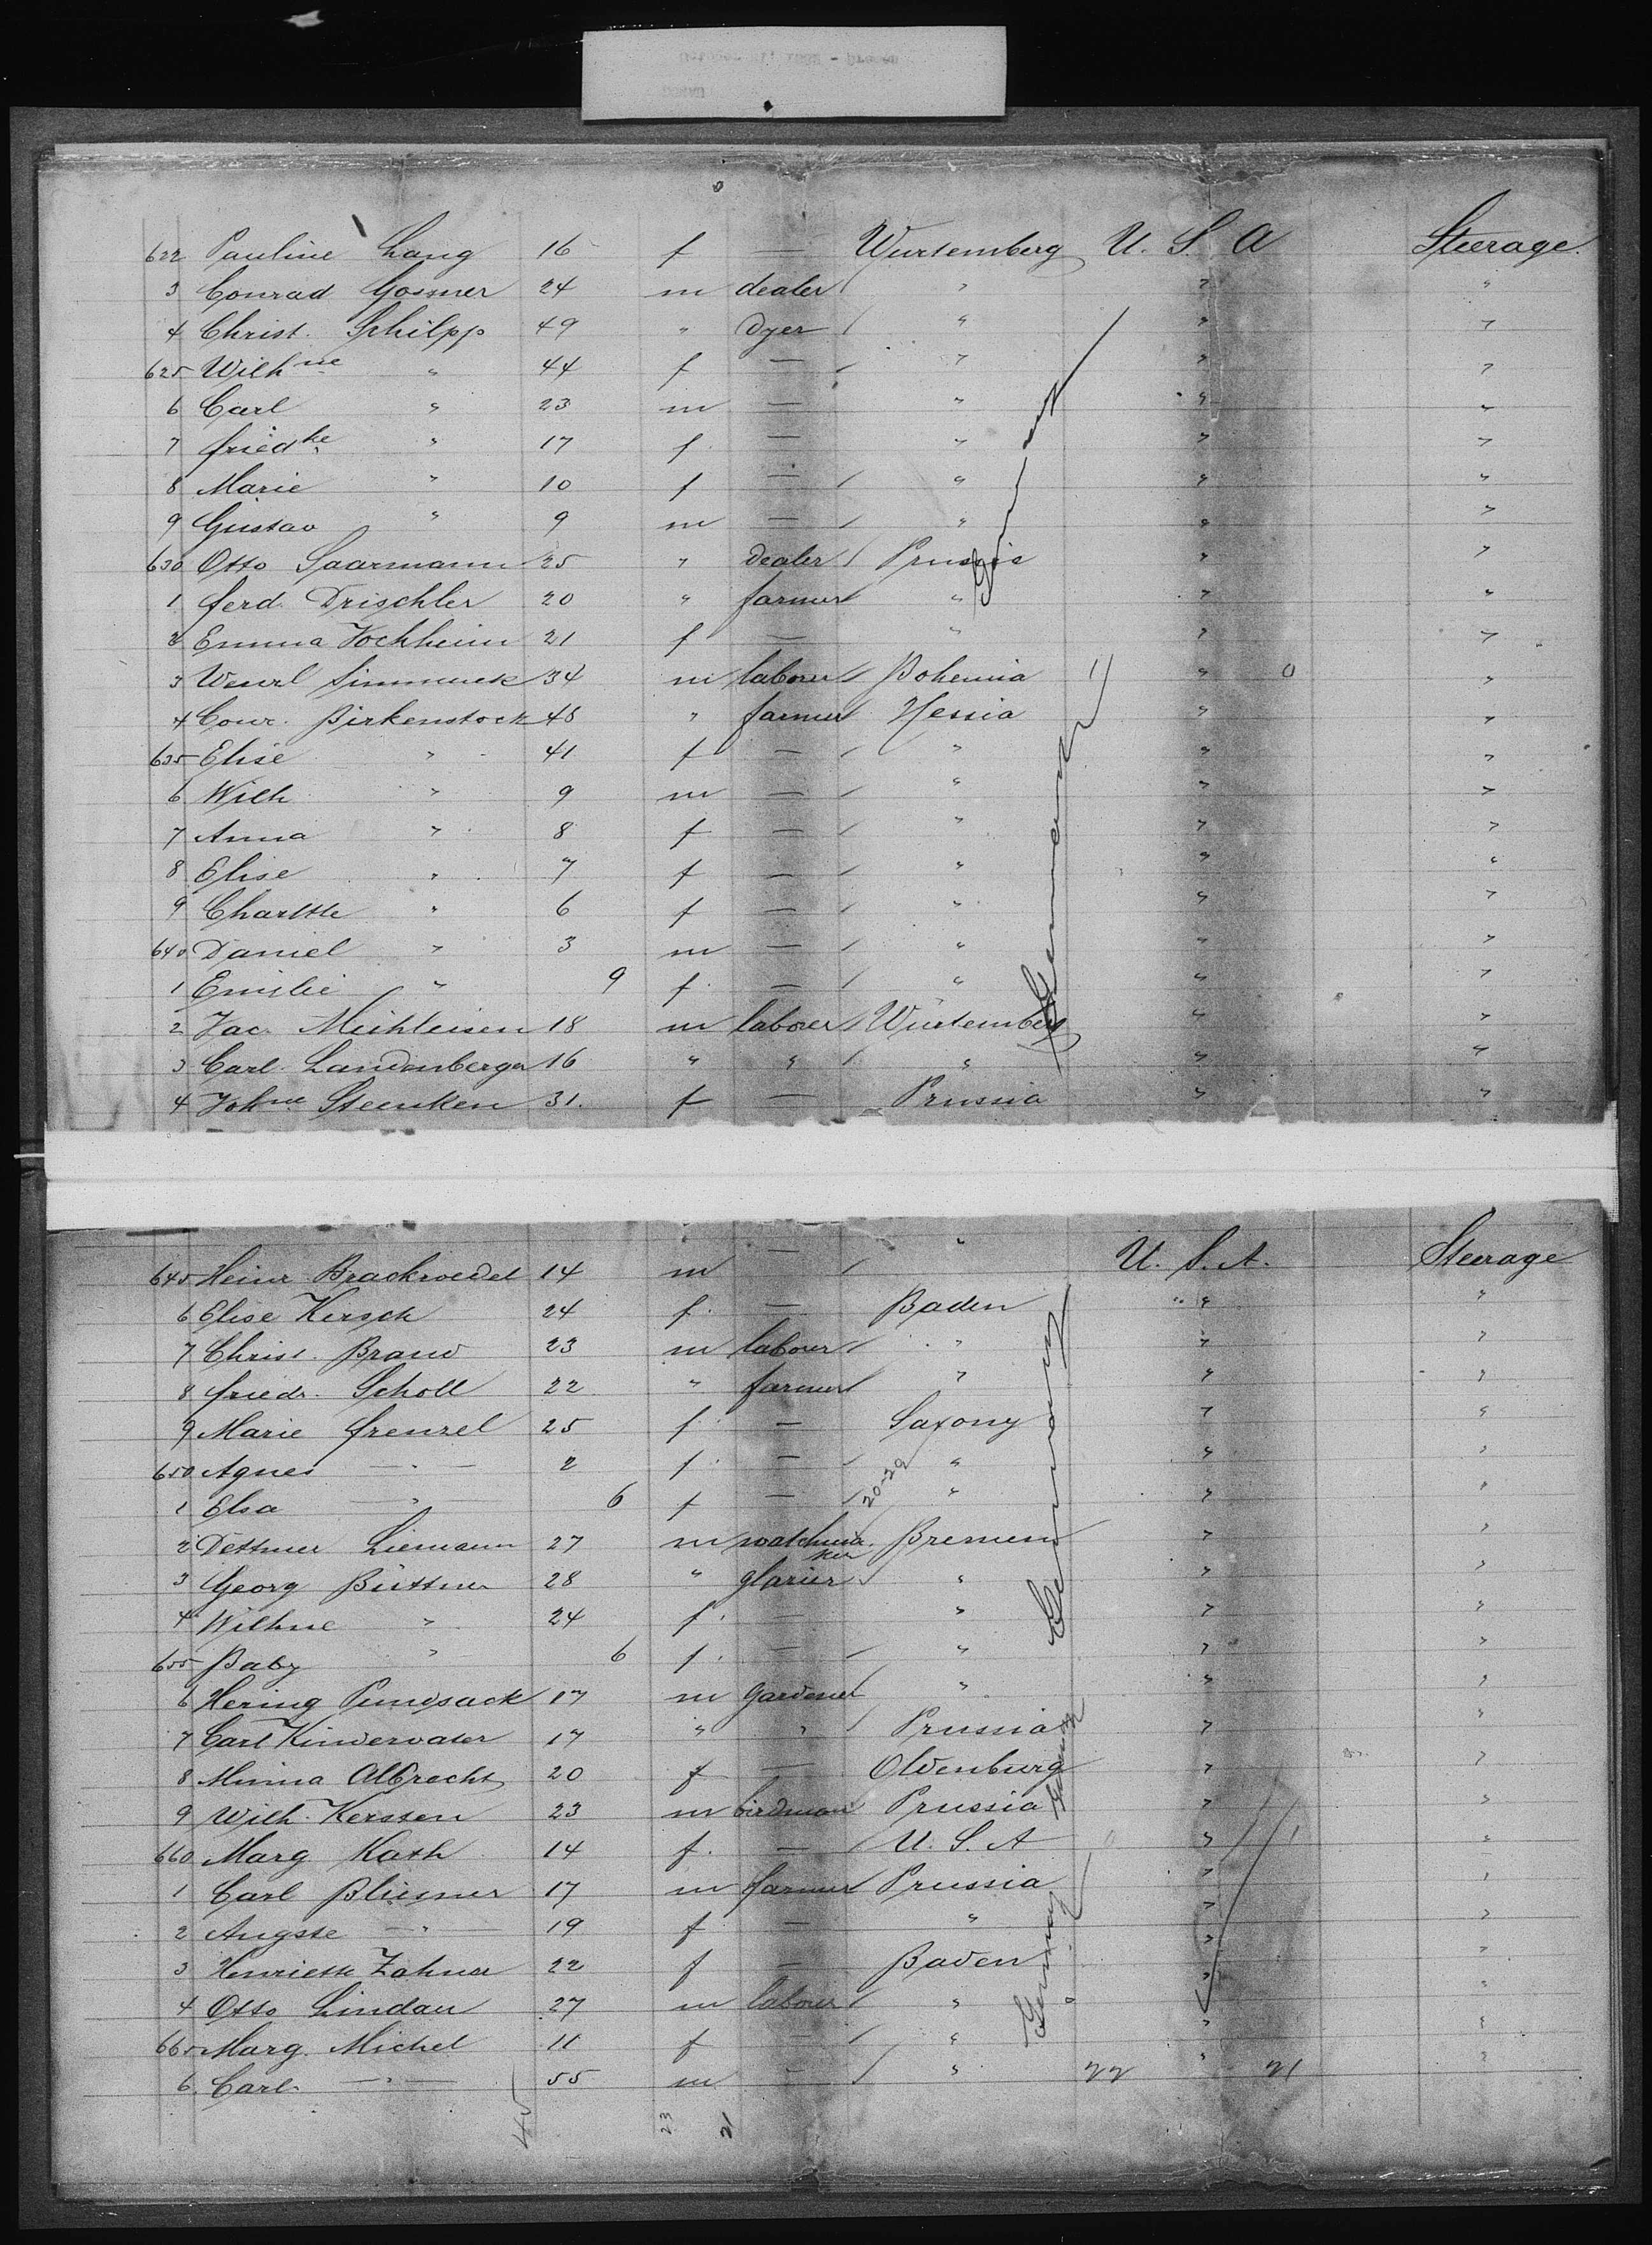 622 Pauline Lang 16 f — Würtemberg U. S. A Steerage.
3 Conrad Gossner 24 m dealer " " "
4 Christ. Schilpp 49 " Dyer " " "
625 Wilhne " 44 f — " " "
6 Carl " 23 m — " " "
7 Friedke " 17 f. — " " "
8 Marie " 10 f — " " "
9 Gustav " 9 m — " " "
630 Otto Saarmann 25 " dealer Prussia " "
1 Ferd. Drischler 20 " farmer " " "
2 Emma Vockheim 21 f — " " "
3 34 m laborer Bohemia 1 " 0 "
4 Conr. Birkenstock 48 " farmer Hessia " "
635 Elise " 41 f — " " "
6 Wilh " 9 m — " " "
7 Anna " 8 f — " " "
8 Elise " 7 f — " " "
9 Charltte " 6 f — " " "
640 Daniel " 3 m — " " "
1 Emilie " 9 f. — " " "
2 Jac. Mühleisen 18 m laborer Würtemberg " "
3 Carl Landenberger 16 " " " " "
4 Johne Steenken 31. f — Prussia " "
Germany
Germany
645 Heinr. Brackwedel 14 m — " U. S. A. Steerage
6 Elise Kirsch 24 f. — Baden " "
7 Christ. Brand 23 m laborer " " "
8 Friedr. Scholl 22 " farmer " " "
9 Marie Frenzel 25 f. — Saxony " "
650 Agnes — " — 2 f. — " " "
1 Elsa — " — 6 f — 20-29 " " "
2 Dettmer Liemann 27 m watchma Bremen " "
ker
3 Georg Büttner 28 " glazier " " "
4 Wilhne " 24 f. — " " "
655 Baby " 6 f. — " " "
6 Hering Pundsack 17 m Gardener " " "
7 Carl Kindervater 17 " " Prussia " "
8 Minna Albrecht 20 f — Oldenburg " "
9 Wilh. Kersten 23 m birdman Prussia " "
660 Marg. Kath 14 f. — U. S. A 0 " 1 "
1 Carl Bliesner 17 m farmer Prussia " "
2 Augste — " — 19 f — " " "
3 Henriette Zahner 22 f — Baden " "
4 Otto Lindau 27 m laborer " " "
665 Marg. Michel 11 f — " " "
6 Carl — " — 55 m — " 22 " 21 "
Germany
Germany
Germany
45 23 21